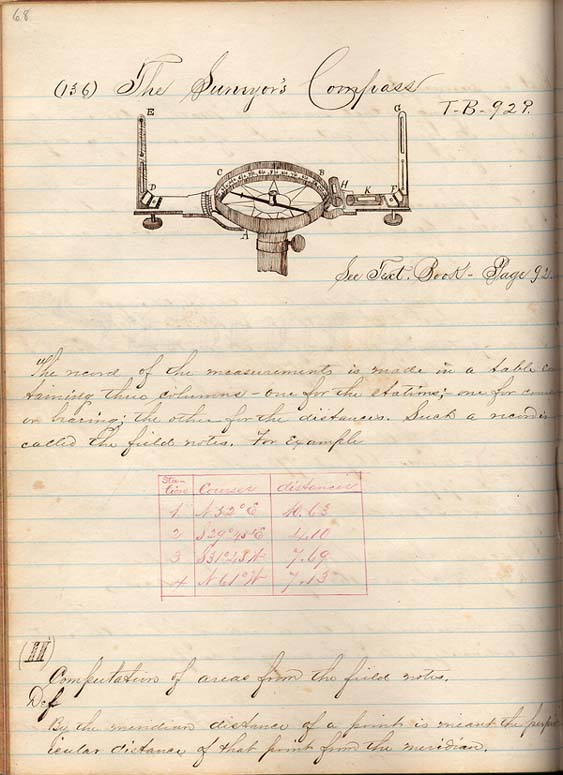 68
(136) The Survyor's Compass
T-B-92P.
E G
C B H
D K P
A
See Text. Book - Page 92.
The record of the measurements is made in a table
taining three columns - one for the stations; one for
or bearing; the other for the distances. Such a record is
called the field notes. For Example
Sta-
tions Courses distances
1 N 52° E 10.63
2 S 29° 45' E 4.10
3 S 31° 45' W 7.69
4 N 61° W 7.13
Computation of areas from the field notes.
Def
By the meridian distance of a point is meant the
icular distance of that point from the meridian.